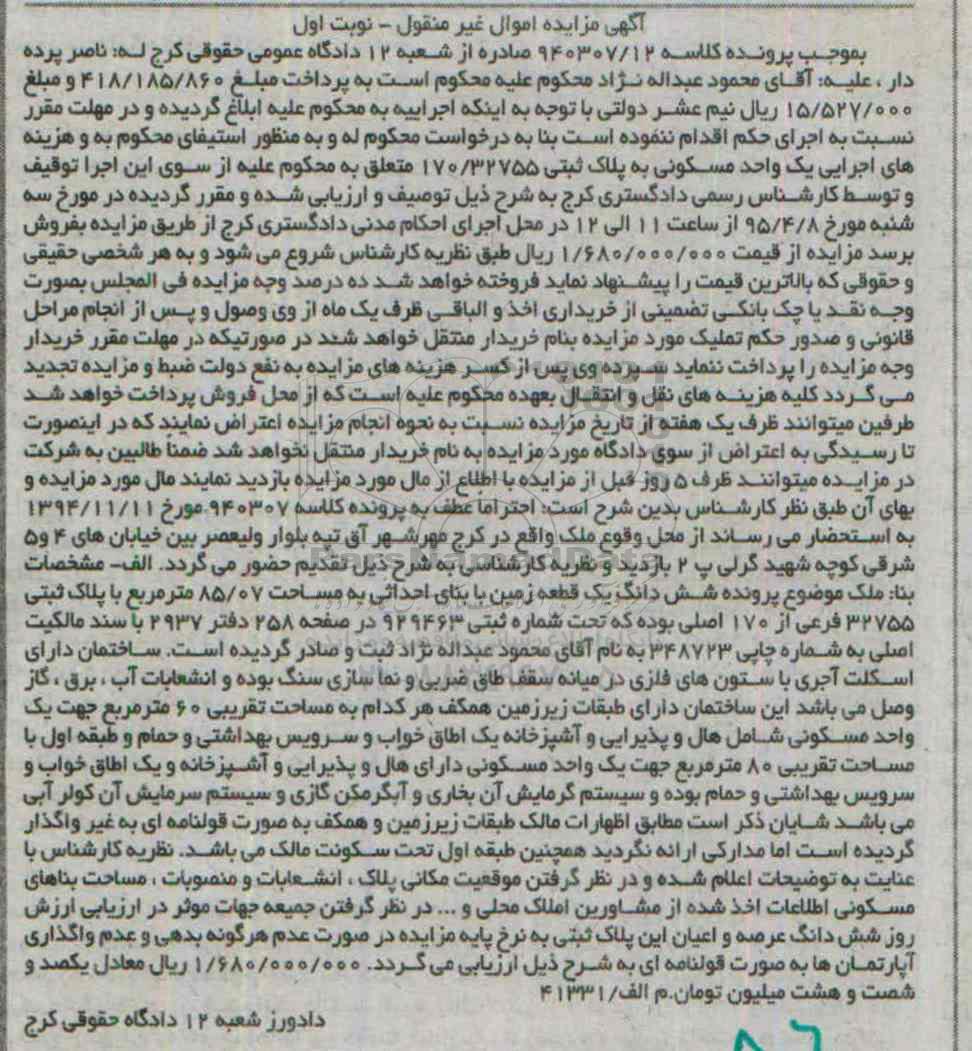 آگهی مزایده اموال غیر منقول - نوبت اول
بموجب پرونده کلاسه ۹۴۰۳۰۷/۱۲ صادره از شعبه ۱۲ دادگاه عمومی حقوقی کرج له: ناصر پرده
دار ، علیه: آقای محمود عبداله نژاد محکوم علیه محکوم است به پرداخت مبلغ ۴۱۸/۱۸۵/۸۶۰ و مبلغ
۱۵/۵۲۷/۰۰۰ ریال نیم عشر دولتی با توجه به اینکه اجراییه به محکوم علیه ابلاغ گردیده و در مهلت مقرر
نسبت به اجرای حکم اقدام ننموده است بنا به درخواست محکوم له و به منظور استیفای محکوم به و هزینه
های اجرایی یک واحد مسکونی به پلاک ثبتی ۱۷۰/۳۲۷۵۵ متعلق به محکوم علیه از سوی این اجرا توقیف
و توسط کارشناس رسمی دادگستری کرج به شرح ذیل توصیف و ارزیابی شده و مقرر گردیده در مورخ سه
شنبه مورخ ۹۵/۴/۸ از ساعت ۱۱ الی ۱۲ در محل اجرای احکام مدنی دادگستری کرج از طریق مزایده بفروش
برسد مزایده از قیمت ۱/۶۸۰/۰۰۰/۰۰۰ ریال طبق نظریه کارشناس شروع می شود و به هر شخصی حقیقی
و حقوقی که بالاترین قیمت را پیشنهاد نماید فروخته خواهد شد ده درصد وجه مزایده فی المجلس بصورت
وجه نقد یا چک بانکی تضمینی از خریداری اخذ و الباقی ظرف یک ماه از وی وصول و پس از انجام مراحل
قانونی و صدور حکم تملیک مورد مزایده بنام خریدار منتقل خواهد شد در صورتیکه در مهلت مقرر خریدار
وجه مزایده را پرداخت ننماید سپرده وی پس از کسر هزینه های مزایده به نفع دولت ضبط و مزایده تجدید
می گردد کلیه هزینه های نقل و انتقال بعهده محکوم علیه است که از محل فروش پرداخت خواهد شد
طرفین میتوانند ظرف یک هفته از تاریخ مزایده نسبت به نحوه انجام مزایده اعتراض نمایند که در اینصورت
تا رسیدگی به اعتراض از سوی دادگاه مورد مزایده به نام خریدار منتقل نخواهد شد ضمناً طالبین به شرکت
در مزایده میتوانند ظرف ۵ روز قبل از مزایده با اطلاع از مال مورد مزایده بازدید نمایند مال مورد مزایده و
بهای آن طبق نظر کارشناس بدین شرح است: احتراما عطف به پرونده کلاسه ۹۴۰۳۰۷ مورخ ۱۳۹۴/۱۱/۱۱
به استحضار می رساند از محل وقوع ملک واقع در کرج مهرشهر آق تپه بلوار ولیعصر بین خیابان های ۴ و۵
شرقی کوچه شهید گرلی پ ۲ بازدید و نظریه کارشناسی به شرح ذیل تقدیم حضور می گردد. الف- مشخصات
بنا: ملک موضوع پرونده شش دانگ یک قطعه زمین با بنای احداثی به مساحت ۸۵/۰۷ مترمربع با پلاک ثبتی
۳۲۷۵۵ فرعی از ۱۷۰ اصلی بوده که تحت شماره ثبتی ۹۲۹۴۶۳ در صفحه ۲۵۸ دفتر ۲۹۳۷ با سند مالکیت
اصلی به شماره چاپی ۳۴۸۷۲۳ به نام آقای محمود عبداله نژاد ثبت و صادر گردیده است. ساختمان دارای
اسکلت آجری با ستون های فلزی در میانه سقف طاق ضربی و نما سازی سنگ بوده و انشعابات آب ، برق ، گاز
وصل می باشد این ساختمان دارای طبقات زیرزمین همکف هر کدام به مساحت تقریبی ۶۰ مترمربع جهت یک
واحد مسکونی شامل هال و پذیرایی و آشپزخانه یک اطاق خواب و سرویس بهداشتی و حمام و طبقه اول با
مساحت تقریبی ۸۰ مترمربع جهت یک واحد مسکونی دارای هال و پذیرایی و آشپزخانه و یک اطاق خواب و
سرویس بهداشتی و حمام بوده و سیستم گرمایش آن بخاری و آبگرمکن گازی و سیستم سرمایش آن کولر آبی
می باشد شایان ذکر است مطابق اظهارات مالک طبقات زیرزمین و همکف به صورت قولنامه ای به غیر واگذار
گردیده است اما مدارکی ارائه نگردید همچنین طبقه اول تحت سکونت مالک می باشد. نظریه کارشناس با
عنایت به توضیحات اعلام شده و در نظر گرفتن موقعیت مکانی پلاک ، انشعابات و منصوبات ، مساحت بناهای
مسکونی اطلاعات اخذ شده از مشاورین املاک محلی و ... در نظر گرفتن جمیعه جهات موثر در ارزیابی ارزش
روز شش دانگ عرصه و اعیان این پلاک ثبتی به نرخ پایه مزایده در صورت عدم هرگونه بدهی و عدم واگذاری
آپارتمان ها به صورت قولنامه ای به شرح ذیل ارزیابی می گردد. ۱/۶۸۰/۰۰۰/۰۰۰ ریال معادل یکصد و
شصت و هشت میلیون تومان.م الف/۴۱۳۳۱
دادورز شعبه ۱۲ دادگاه حقوقی کرج